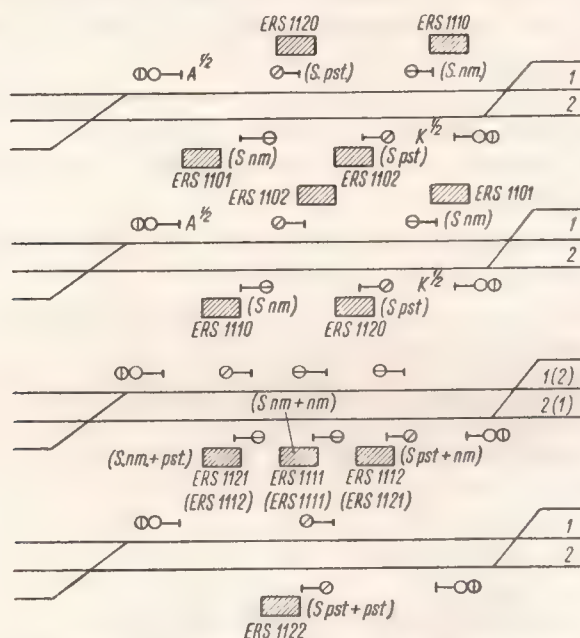 ERS 1120 ERS 1110
A 1/2 (S.pst.) (S.nm.) 1
2
(S nm) (S pst) K 1/2
ERS 1101 ERS 1102
ERS 1102 ERS 1101
A 1/2 (S nm) 1
2
(S nm) (S pst) K 1/2
ERS 1110 ERS 1120
1(2)
(S nm + nm) 2(1)
(S.nm.+ pst.) (S pst + nm)
ERS 1121 ERS 1111 ERS 1112
(ERS 1112) (ERS 1111) (ERS 1121)
1
2
(S pst + pst)
ERS 1122